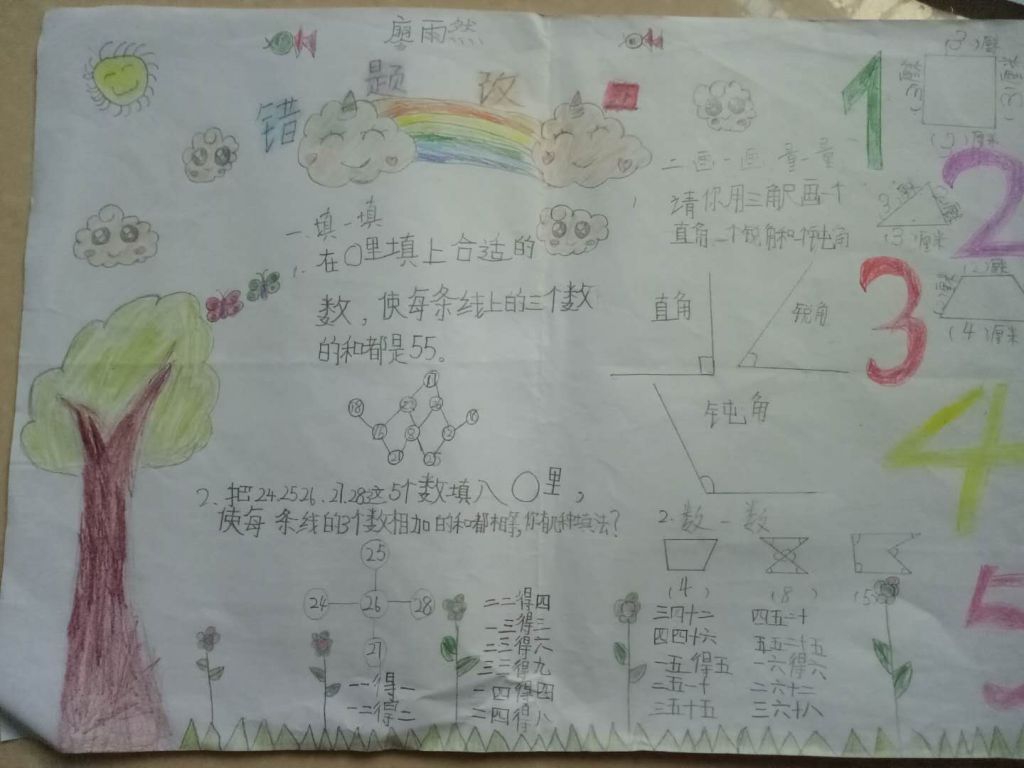 雨然
错题改
一、填一填
1. 在〇里填上合适的
数，使每条线上的三个数
的和都是55。
18
2. 把24.25 26 .27.28这5个数填入〇里，
使每条线的3个数相加的和都相等,你有几种填法?
25
24 26 28
27
一一得一
一二得二
二二得四
一三得三
二三得六
三三得九
一四得四
二四得八
二画一画 量一量
1
请你用三角尺画一个
直角一个锐角和一个钝角
直角
锐角
钝角
2. 数一数
(4)
(8)
(5
三四十二
四四十六
一五得五
二五一十
三五十五
四五二十
五五二十五
一六得六
二六十二
三六十八
1
2
3
4
5
(3)厘
(3)厘米
(3)厘米
(3)厘米
3
(3)厘米
(2)厘米
(4)厘米